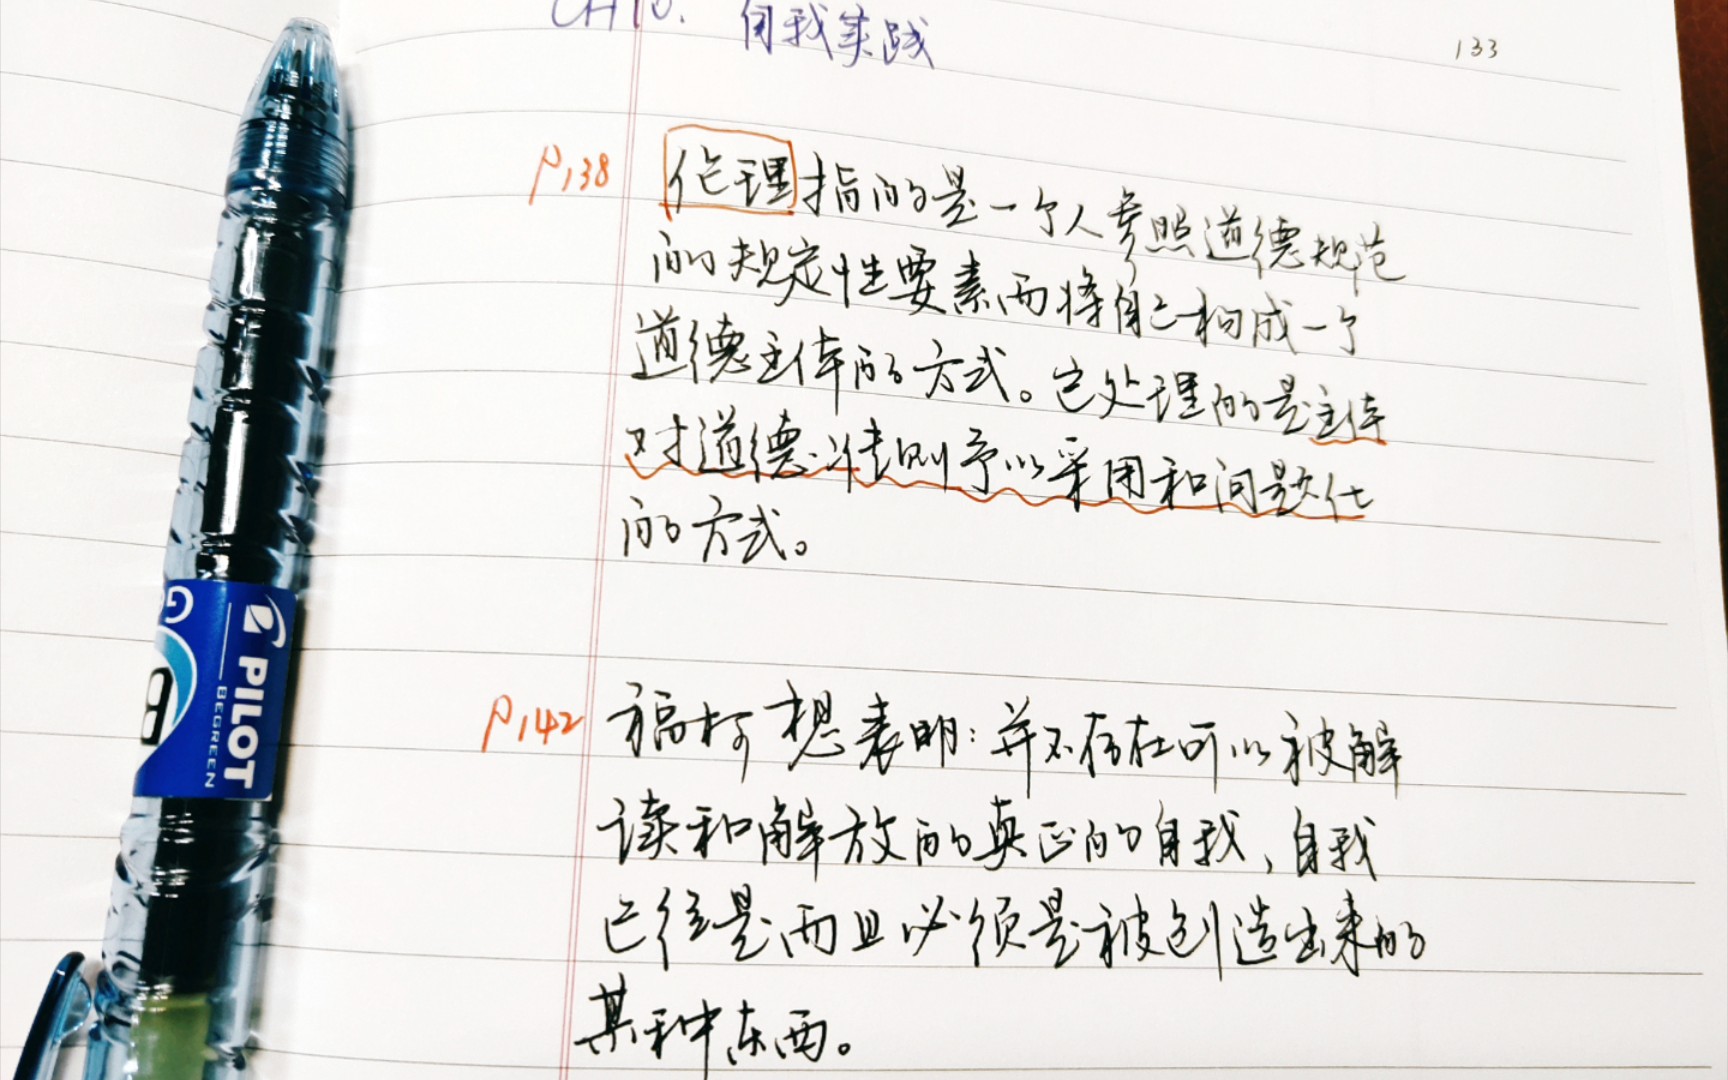 CH10. 自我实践
133
P138 伦理指的是一个人参照道德规范
的规定性要素而将自己构成一个
道德主体的方式。它处理的是主体
对道德准则予以采用和问题化
的方式。
P142 福柯想表明：并不存在可以被解
读和解放的真正的自我，自我
已经是而且必须是被创造出来的
某种东西。
PILOT
BEGREEN
G